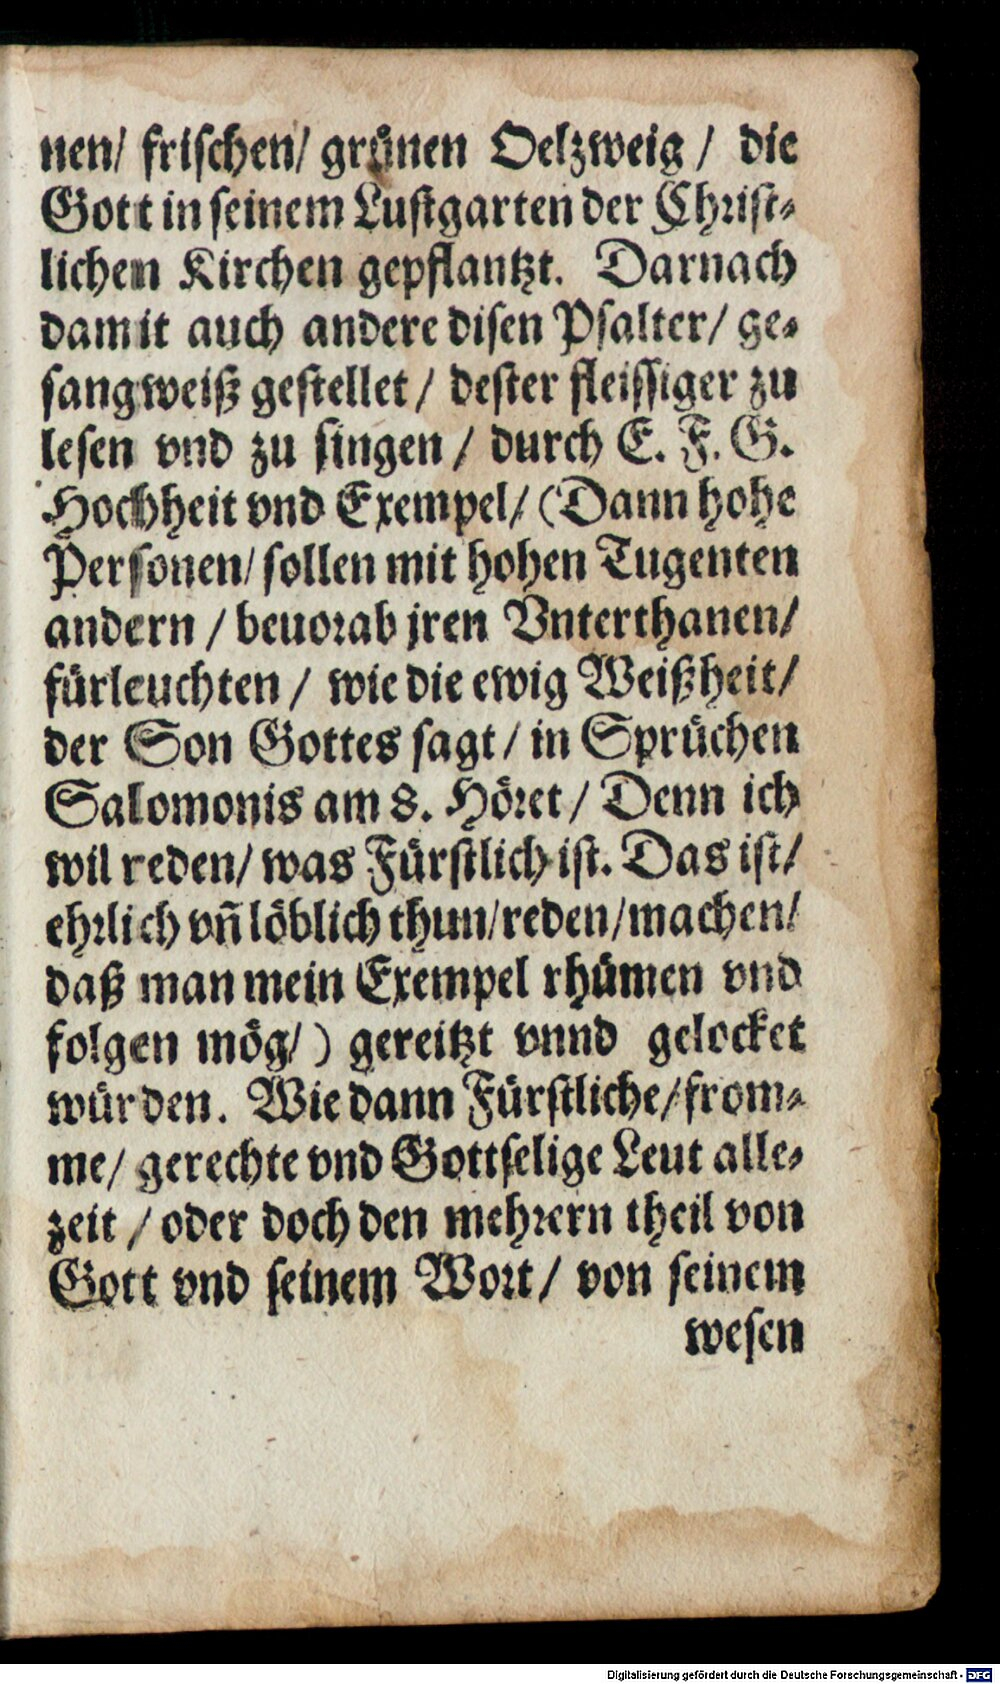 nen/ frischen/ grünen Oelzweig / die
Gott in seinem Lustgarten der Christ-
lichen Kirchen gepflantzt. Darnach
damit auch andere disen Psalter/ ge-
sangweiß gestellet / dester fleissiger zu
lesen vnd zu singen / durch E. F. G.
Hochheit vnd Exempel/ (Dann hohe
Personen/ sollen mit hohen Tugenten
andern / beuorab jren Vnterthanen/
fürleuchten / wie die ewig Weißheit/
der Son Gottes sagt / in Sprüchen
Salomonis am 8. Höret / Denn ich
wil reden/ was Fürstlich ist. Das ist/
ehrlich vñ löblich thun/reden/machen/
daß man mein Exempel rhümen vnd
folgen mög/ ) gereitzt vnnd gelocket
würden. Wie dann Fürstliche/ from-
me/ gerechte vnd Gottselige Leut alle-
zeit / oder doch den mehrern theil von
Gott vnd seinem Wort / von seinem
wesen
Digitalisierung gefördert durch die Deutsche Forschungsgemeinschaft - DFG